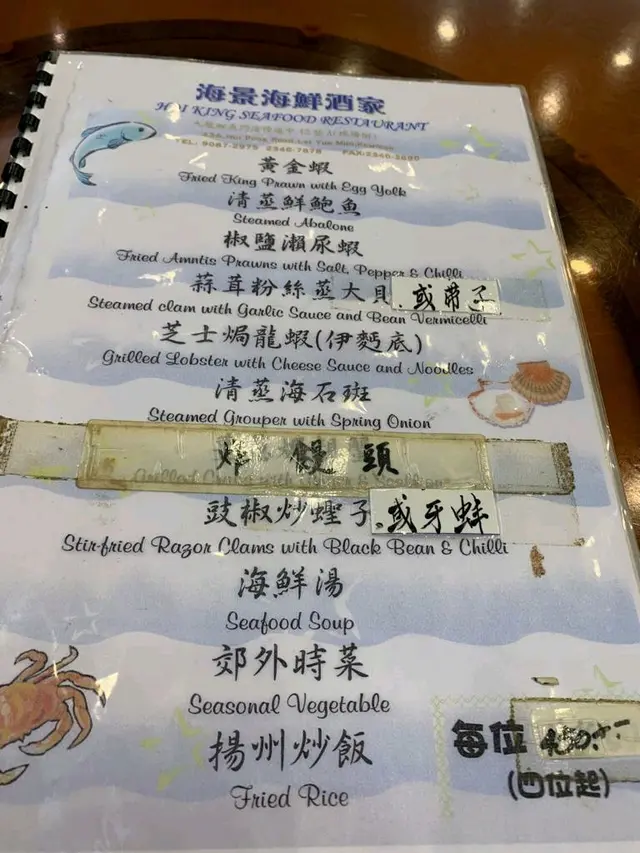 海景海鮮酒家
HAI KING SEAFOOD RESTAURANT
TEL: 9087-2975 2346-7678 FAX:2346-3880
黃金蝦
Fried King Prawn with Egg Yolk
清蒸鮮鮑魚
Steamed Abalone
椒鹽瀨尿蝦
Fried Amntis Prawns with Salt, Pepper & Chilli
蒜茸粉絲蒸大貝 或帶子
Steamed clam with Garlic Sauce and Bean Vermicelli
芝士焗龍蝦(伊麵底)
Grilled Lobster with Cheese Sauce and Noodles
清蒸海石斑
Steamed Grouper with Spring Onion
炸饅頭
豉椒炒蟶子 或牙蚌
Stir-fried Razor Clams with Black Bean & Chilli
海鮮湯
Seafood Soup
郊外時菜
Seasonal Vegetable
揚州炒飯
Fried Rice
每位
(四位起)